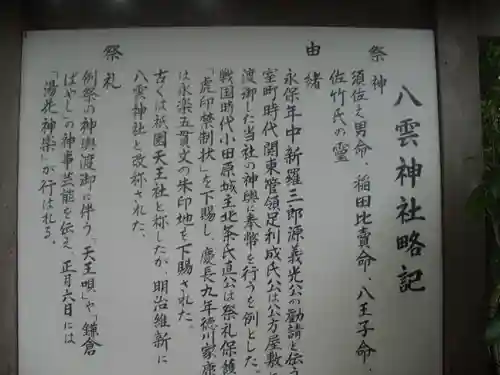 八雲神社略記
祭神
須佐之男命、稲田比賣命、八王子命、
佐竹氏の霊
由緒
永保年中新羅三郎源義光公の勧請と伝う
室町時代関東管領足利成氏公は公方屋敷
渡御した当社の神輿に奉幣を行うを例とした。
戦国時代小田原城主北条氏直公は祭礼保護
「虎印禁制状」を下賜し、慶長九年徳川家康
は永楽五貫文の朱印地を下賜された。
古くは祇園天王社と称したが、明治維新に
八雲神社と改称された。
祭礼
例祭の神輿渡御に伴う「天王唄」や「鎌倉
ばやし」の神事芸能を伝え、正月六日には
「湯花神楽」が行はれる。